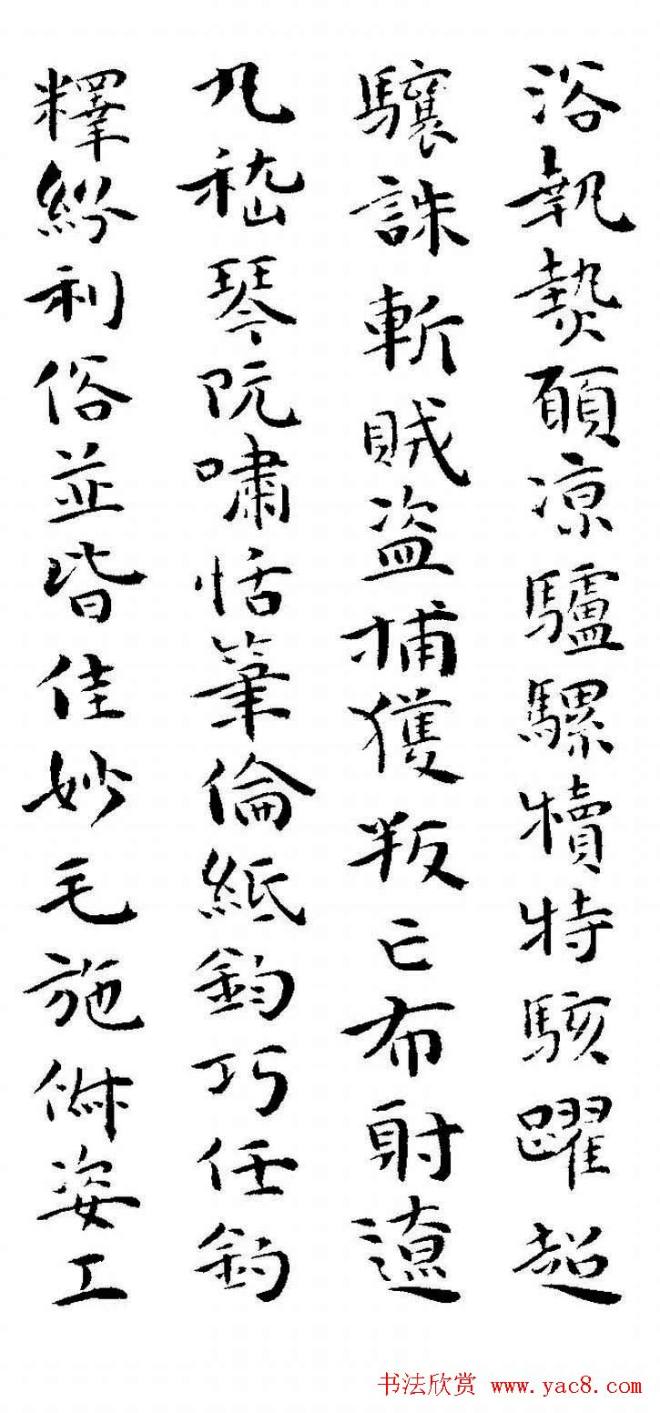 浴執熱願凉驢騾犢特駭躍超
驤誅斬賊盜捕獲叛亡布射遼
丸嵇琴阮嘯恬筆倫紙鈞巧任鈞
釋紛利俗並皆佳妙毛施淑姿工
书法欣赏 www.yac8.com